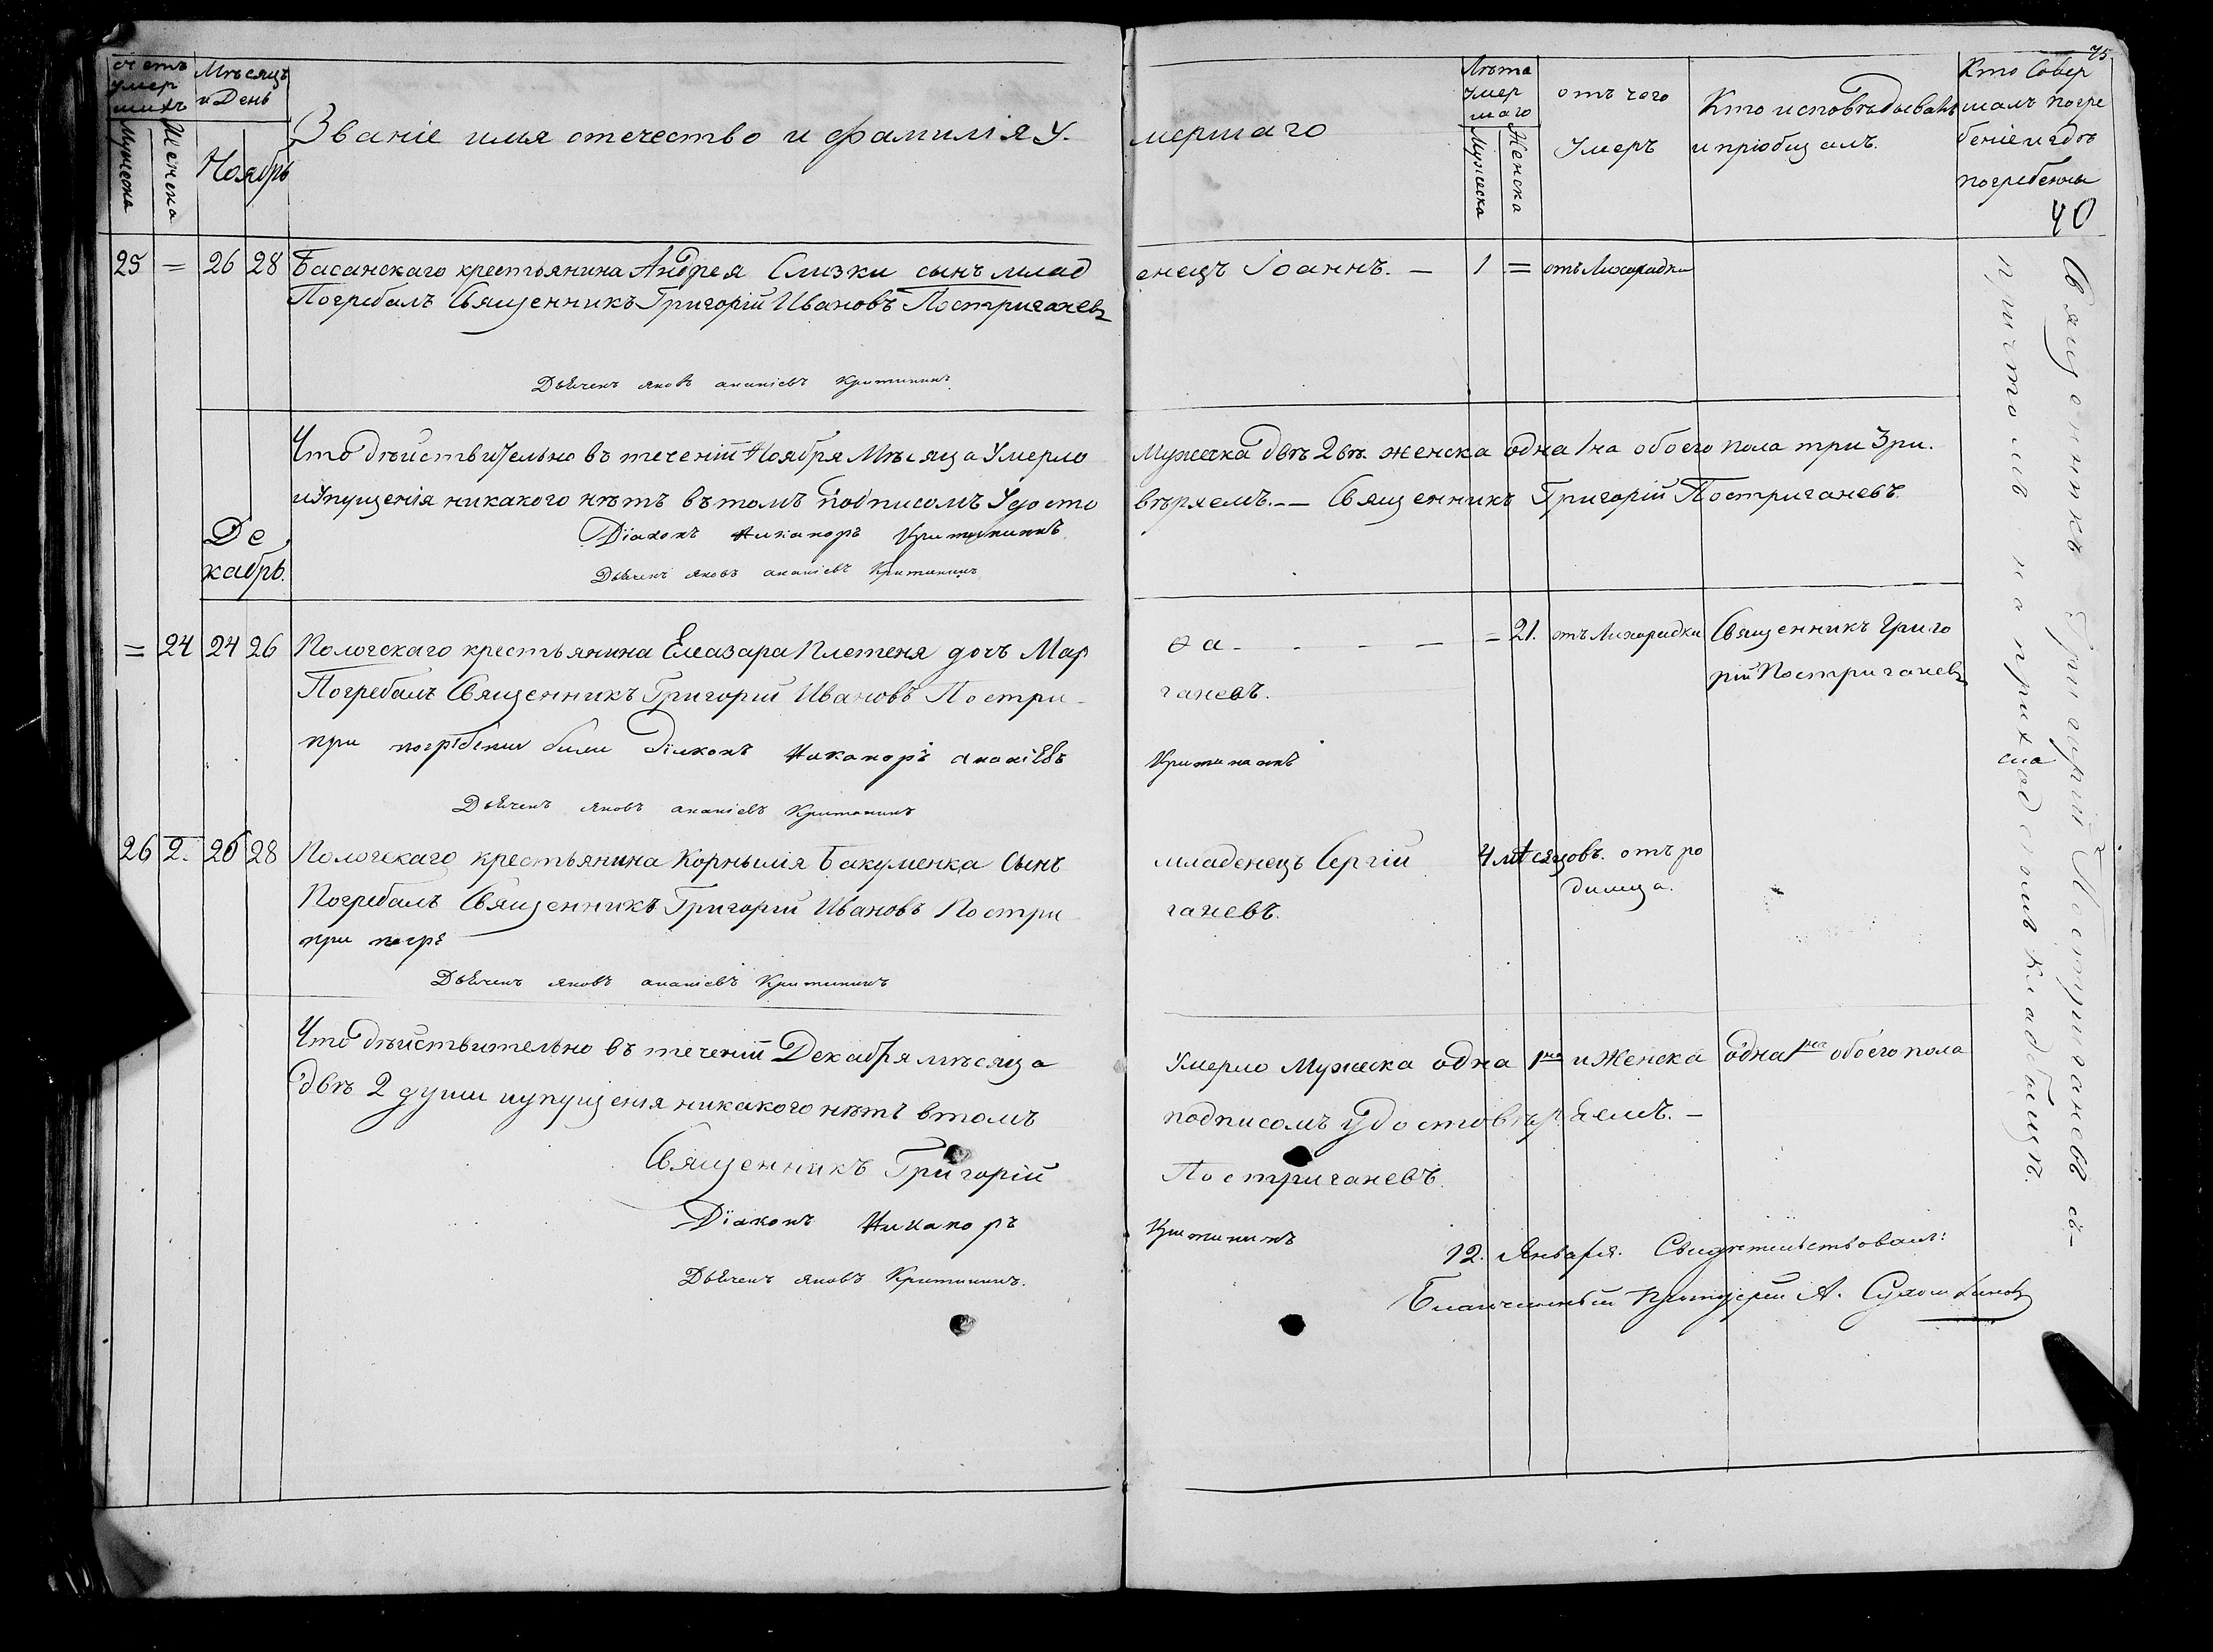 75
счетъ умер шихъ
Мужеска
Женска
Мѣсяцъ и День
Ноябрь
Званіе имя отечество и фамилія У. мершаго
Лѣта Умер шаго
Мужеска
Женска
отъ чего Умеръ
Кто исповѣдывалъ и пріобщалъ.
Кто Совер шалъ погре беніе и гдѣ погребенны
40
25 = 26 28 Басанскаго крестьянина Андрея Слизки сынъ млад енецъ Іоаннъ. — 1 = отъ Лихорадки
Погребалъ Священникъ Григорій Ивановъ Постриганевъ
Дьячекъ яковъ ананіевъ Критининъ
Что дѣйствительно въ теченіи Ноября Мѣсяца Умерло Мужеска двѣ 2вѣ. женска одна 1на обоего пола три 3ри.
и Упущенія никакого нѣтъ въ томъ подписомъ Удосто вѣряемъ. — Священникъ Григорій Постриганевъ.
Діаконъ Никаноръ Критининъ
Дьячекъ яковъ ананіевъ Критининъ
Де кабрь.
= 24 24 26 Пологскаго крестьянина Елеазара Плетеня дочъ Мар ѳа - - - — = 21. отъ Лихорадки Священникъ Григо рій Постриганевъ
Погребалъ Священникъ Григорій Ивановъ Постри ганевъ.
при погребении были Діяконъ Никаноръ ананіевъ Критининъ
Дьячекъ яковъ ананіевъ Критининъ
26 2. 26 28 Пологскаго крестьянина Корнылія Бакуменка Сынъ младенецъ Сергій 4 мѣсяцовъ. отъ ро димца.
Погребалъ Священникъ Григорій Ивановъ Постри ганевъ.
при погре
Дьячекъ яковъ ананіевъ Критининъ
Что дѣйствительно въ теченіи Декабря мѣсяца Умерло Мужеска одна 1на и Женска одна 1на обоего пола
двѣ 2 души иупущенія никакого нѣтъ втомъ подписомъ удостовѣряемъ. —
Священникъ Григорій Постриганевъ.
Діаконъ Никаноръ Критининъ
Дьячекъ яковъ Критининъ.
12. Января. Свидѣтельствовалъ:
Благочинный Протоіерей А. Сухомлиновъ
Священникъ Григорій Постриганевъ съ
причтомъ на приходскомъ кладбищѣ.